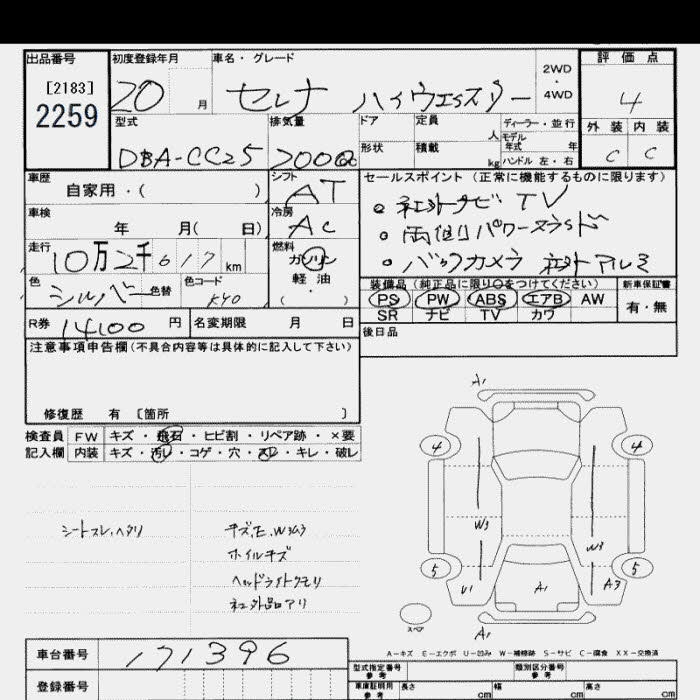 出品番号 初度登録年月 車名・グレード 評価点
[2183]
2259
20 月 セレナ ハイウェイスター
2WD
・
4WD
4
型式 排気量 ドア 定員 人 ディーラー・並行 外装 内装
モデル年式 年
DBA-CC25 2000 形状 積載 kg ハンドル 左・右 C C
車歴 シフト セールスポイント (正常に機能するものに限ります)
自家用・( ) AT
社外ナビ TV
車検 冷房
年 月( 日) AC
両側パワースライド
走行 燃料
10万2千617 km ガソリン
軽油
・( )
バックカメラ 社外アルミ
色 シルバー 色替 色コード KY0
装備品 (純正品に限り○をつけてください) 新車保証書
PS PW ABS エアB AW 有・無
SR ナビ TV カワ
R券 14100 円 名変期限 月 日
後日品
注意事項申告欄(不具合内容等は具体的に記入して下さい)
修復歴 有 〔箇所 〕
検査員 FW キズ・飛石・ヒビ割・リペア跡・×要
記入欄 内装 キズ・汚レ・コゲ・穴・スレ・キレ・破レ
シートスレ、ヘタリ
キズ,E,W3ムラ
ホイルキズ
ヘッドライトクモリ
社外品アリ
A1
4 4
W3 W3
5 5
U1 A1 A3
スペア
A1
A-キズ E-エクボ U-凹み W-補修跡 S-サビ C-腐食 XX-交換済
車台番号 171396
型式指定番号 参考 類別区分番号 参考
登録番号 車庫証明用 参考 長さ cm 幅 cm 高さ cm